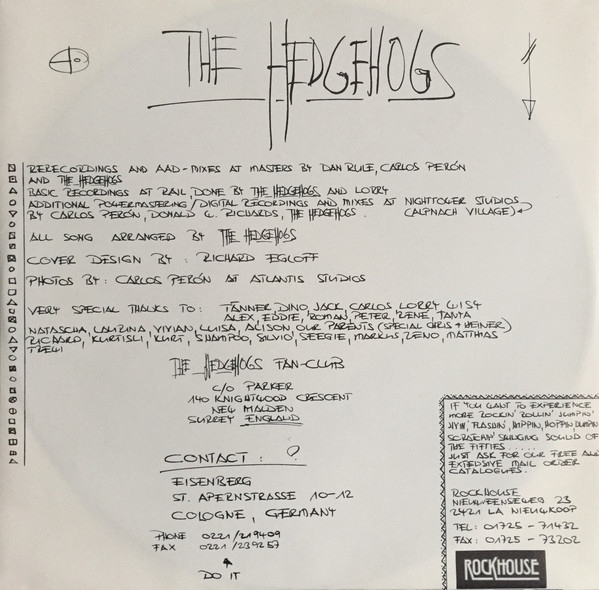 THE HEDGEHOGS
RERECORDINGS AND AAD-MIXES AT MASTERS BY DAN RULE, CARLOS PERÓN
AND THE HEDGEHOGS
BASIC RECORDINGS AT RAIL, DONE BY THE HEDGEHOGS AND LORRY
ADDITIONAL POWERMASTERING/DIGITAL RECORDINGS AND MIXES AT NIGHTOWER STUDIOS
BY CARLOS PERÓN, DONALD G. RICHARDS, THE HEDGEHOGS. (ALPNACH VILLAGE)
ALL SONG ARRANGED BY THE HEDGEHOGS
COVER DESIGN BY: RICHARD EGLOFF
PHOTOS BY: CARLOS PERÓN AT ATLANTIS STUDIOS
VERY SPECIAL THANKS TO: TÄNNER, DINO, JACK, CARLOS LORRY
ALEX, EDDIE, ROMAN, PETER, RENE, TANJA
NATASCHA, VIVIAN, LUISA, ALISON OUR PARENTS (SPECIAL CHRIS + HEINER)
RICARDO, KURTISLI, KURT, SHAMPOO, SILVIO, SEEGIE, MARKUS, ZENO, MATTHIAS
THE HEDGEHOGS FAN-CLUB
C/O PARKER
140 KNIGHTWOOD CRESCENT
NEW MALDEN
SURREY ENGLAND
CONTACT: ?
EISENBERG
ST. APERNSTRASSE 10-12
COLOGNE, GERMANY
PHONE 0221/219409
FAX 0221/239257
DO IT
IF YOU WANT TO EXPERIENCE
MORE ROCKIN' ROLLIN' JUMPIN'
JIVIN', FLASHIN', HIPPIN, HOPPIN,
SCRATCHIN' SWINGING SOUND OF
THE FIFTIES.....
JUST ASK FOR OUR FREE AND
EXTENSIVE MAIL ORDER
CATALOGUES.
ROCKHOUSE
NIEUWVEENSEWEG 23
2421 LA NIEUWKOOP
TEL: 01725-71432
FAX: 01725-73202
ROCKHOUSE